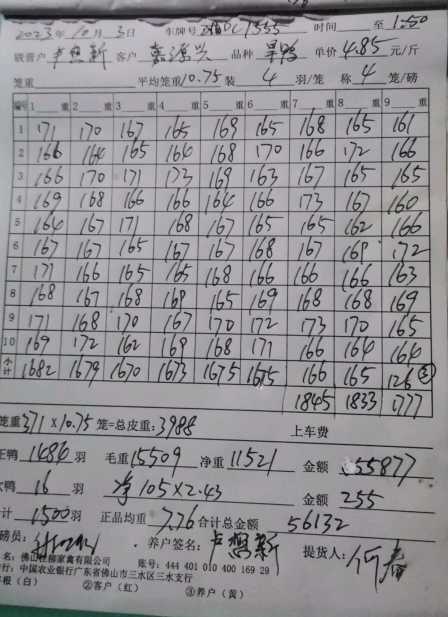 2023年10月3日 车牌号 时间 至 1:50
客户 品种 单价 4.85 元/斤
笼重 平均笼重 10.75 装 4 羽/笼 称 4 笼/磅
编号 1 重 2 重 3 重 4 重 5 重 6 重 7 重 8 重 9 重
1 171 170 167 165 169 165 168 165 161
2 166 164 165 164 168 170 166 172 166
3 166 170 171 173 169 163 167 165 165
4 169 168 166 166 164 166 173 167 160
5 164 167 171 168 167 165 165 162 166
6 167 167 165 167 167 168 167 168 172
7 171 166 165 165 168 166 166 166 163
8 168 167 168 168 165 169 168 168 169
9 171 168 170 167 170 172 173 170 165
10 169 172 162 169 168 171 166 164 164
小计 1682 1679 1670 1673 1675 1675 166 165 126 ③
1845 1833 1777
笼重 371 X10.75 笼=总皮重: 3988 上车费
正鸭 1484 羽 毛重 15509 净重 11521 金额 55877
鸭 16 羽 净 105 X 2.43 金额 255
计 1500 羽 正品均重 7.76 合计总金额 56132
磅员: 养户签名: 提货人:
名: 佛山 家禽有限公司 账号: 444 401 010 400 169 29
行: 中国农业银行广东省佛山市三水区三水支行
根（白） ②客户（红） ③养户（黄）